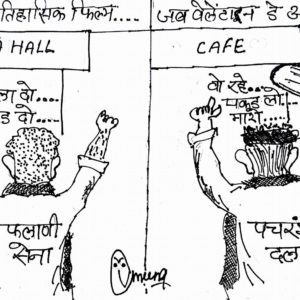 तिहासिक फिल्म....
HALL
ला दो....
ड़ दो....
फलाणी
सेना
जब वेलेंटाइन डे
CAFE
वो रहे....
पकड़ लो...
मारो....
पचरं
दल
Umung